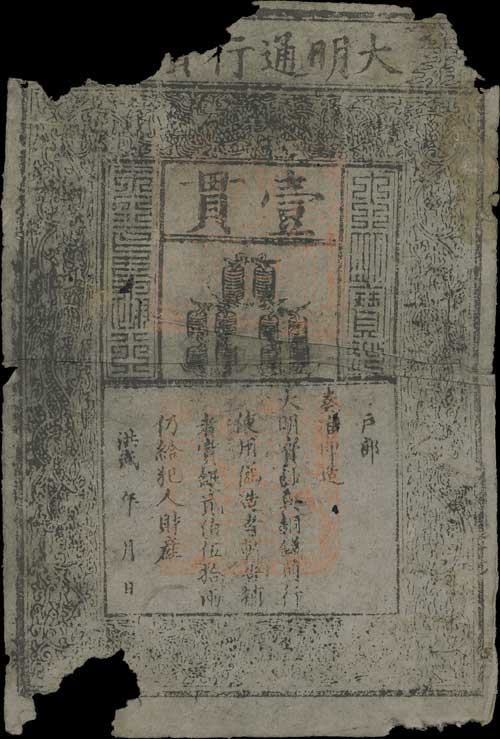 大明通行
壹貫
大明寶鈔
天下通行
戶部
奏准印造
大明寶鈔與銅錢通行
使用偽造者斬告捕
者賞銀貳佰伍拾兩
仍給犯人財產
洪武 年 月 日